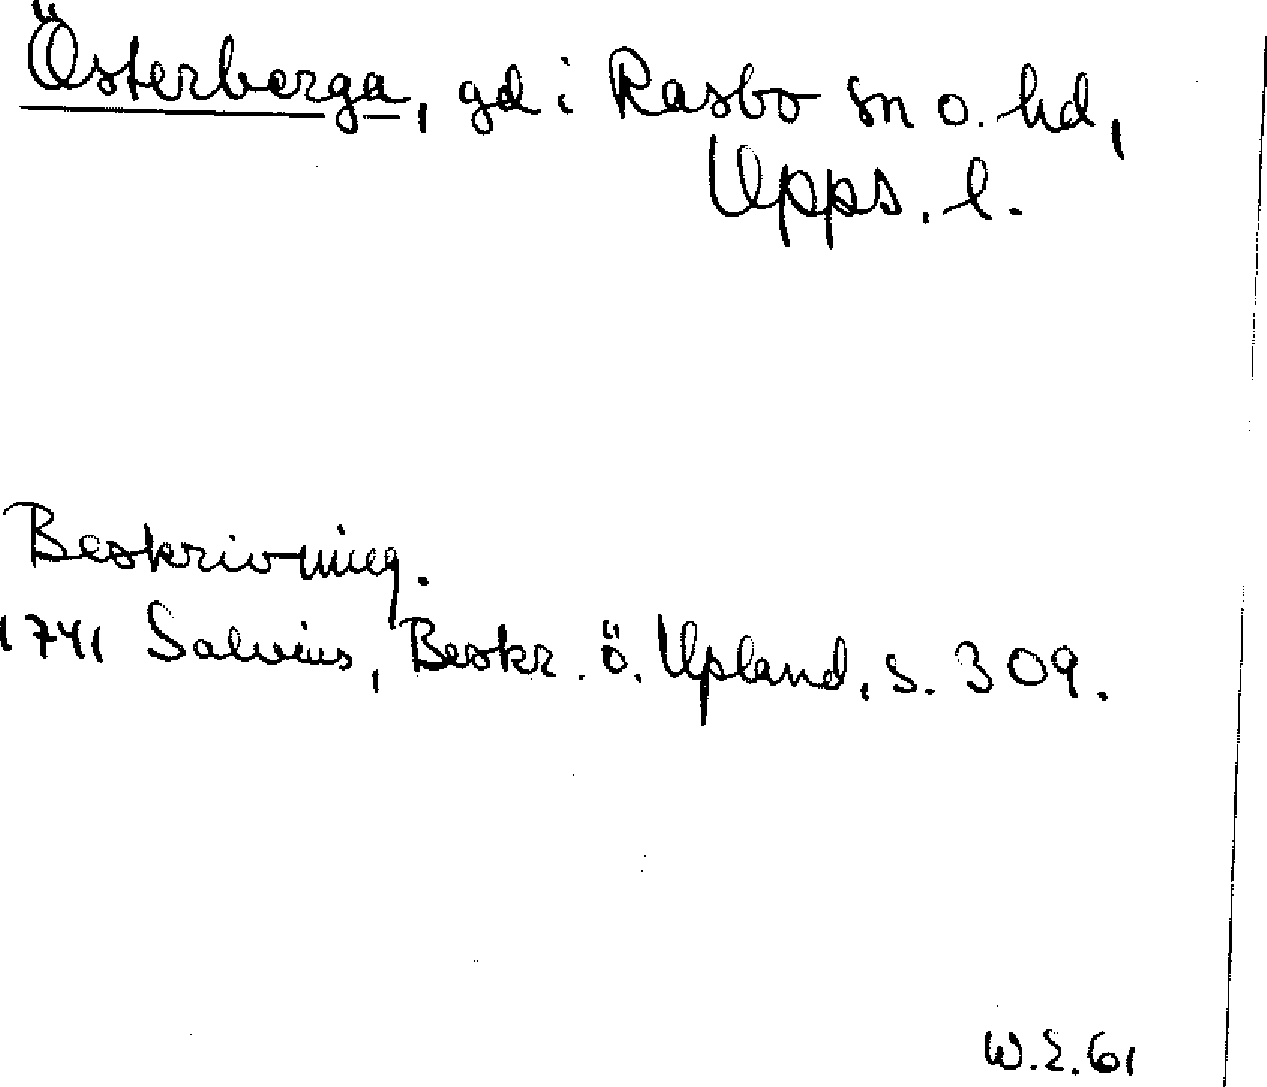 Österberga, gd i Rasbo sn o. hd,
Upps. l.
Beskrivning.
1741 Salvius, Beskr. ö. Upland, s. 309.
W.E.61